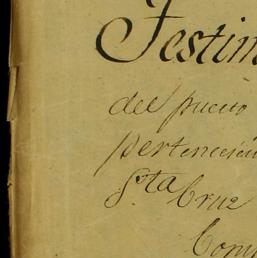 Testim
del puerto
pertenecien
Sta Cruz
Com